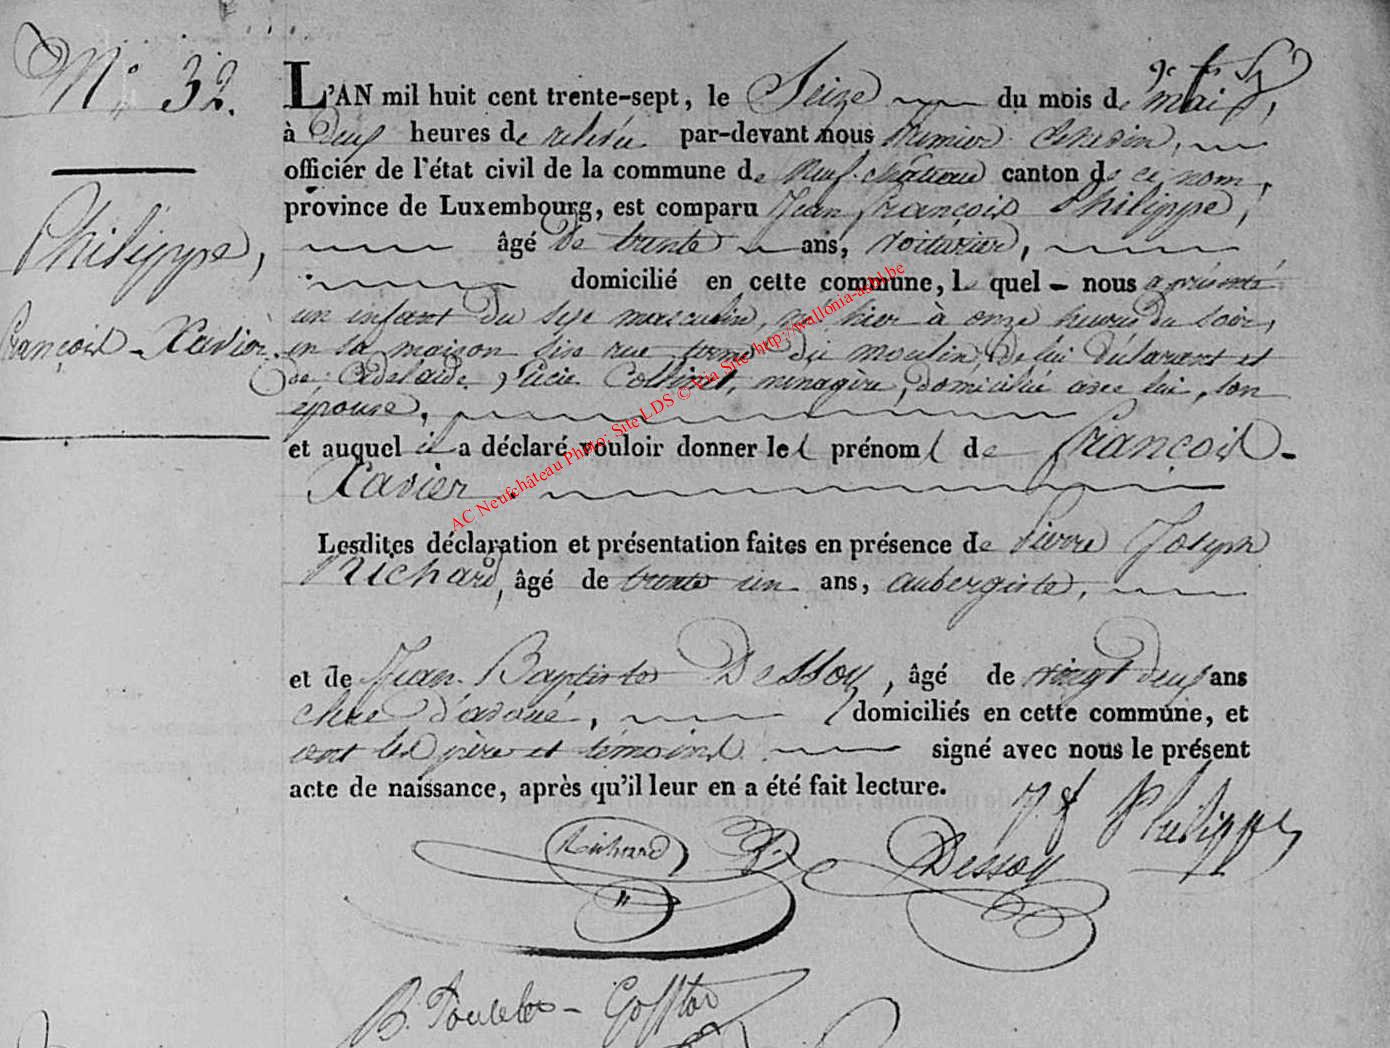 N° 32.
L'AN mil huit cent trente-sept, le Seize du mois de mai,
à deux heures de relevée par-devant nous premier échevin,
officier de l'état civil de la commune de Neufchâteau canton de ce nom,
province de Luxembourg, est comparu Jean françois Philippe,
âgé de trente ans, voiturier,
domicilié en cette commune, le quel nous a présenté
un enfant du sexe masculin, né hier à onze heures du soir,
en sa maison sise rue du moulin, de lui déclarant et
de Adélaïde, Lucie Collinet, ménagère, domiciliée avec lui, son
épouse,
et auquel il a déclaré vouloir donner les prénoms de françois-
Xavier.
Lesdites déclaration et présentation faites en présence de Pierre Joseph
Richard, âgé de trente un ans, aubergiste,
et de Jean Baptiste Dessoy, âgé de vingt deux ans
clerc d'avoué, domiciliés en cette commune, et
ont les père et témoins signé avec nous le présent
acte de naissance, après qu'il leur en a été fait lecture.
Philippe,
françois-Xavier.
J. f Philippe
Richard
Dessoy
AC Neufchâteau Photo: Site LDS © Via Site http://wallonia-asbl.be